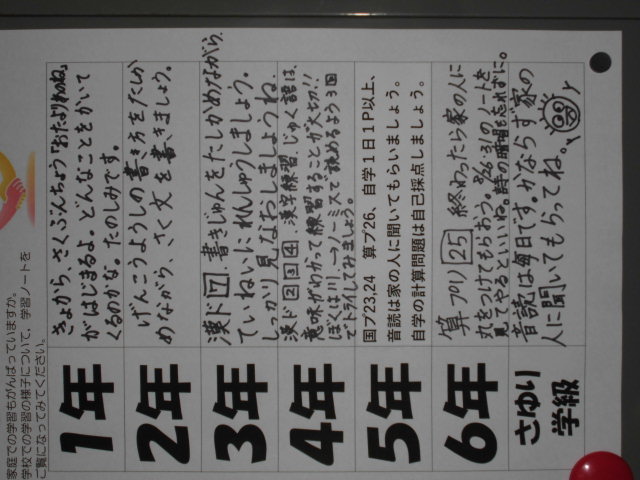 家庭での学習もがんばっていますか。
学校での学習の様子について、学習ノートを
ご覧になってみてください。
1年
きょから、さくぶんちょう「おたよりおかね」
がはじまるよ。どんなことをかいて
くるのかな。たのしみです。
2年
げんこうようしの書き方をたしか
めながら、さく文を書きましょう。
3年
漢ド17.書きじゅんをたしかめながら、
ていねいにれんしゅうしましょう。
しっかり見なおしましょうね。
4年
漢ド234 漢字練習 じゅく語は、
意味がわかって練習することが大切!!
「ぼくは川」一つノーミスで読めるよう3回
でトライしてみましょう。
5年
国プ23,24 算プ26、自学1日1P以上、
音読は家の人に聞いてもらいましょう。
自学の計算問題は自己採点しましょう。
6年
算プリ25 終わったら家の人に
丸をつけてもらおう。8/26~31のノートを
見てやるといいね。詩の暗唱も忘れずに。
さゆり
学級
音読は毎日です。かならず家の
人に聞いてもらってね。